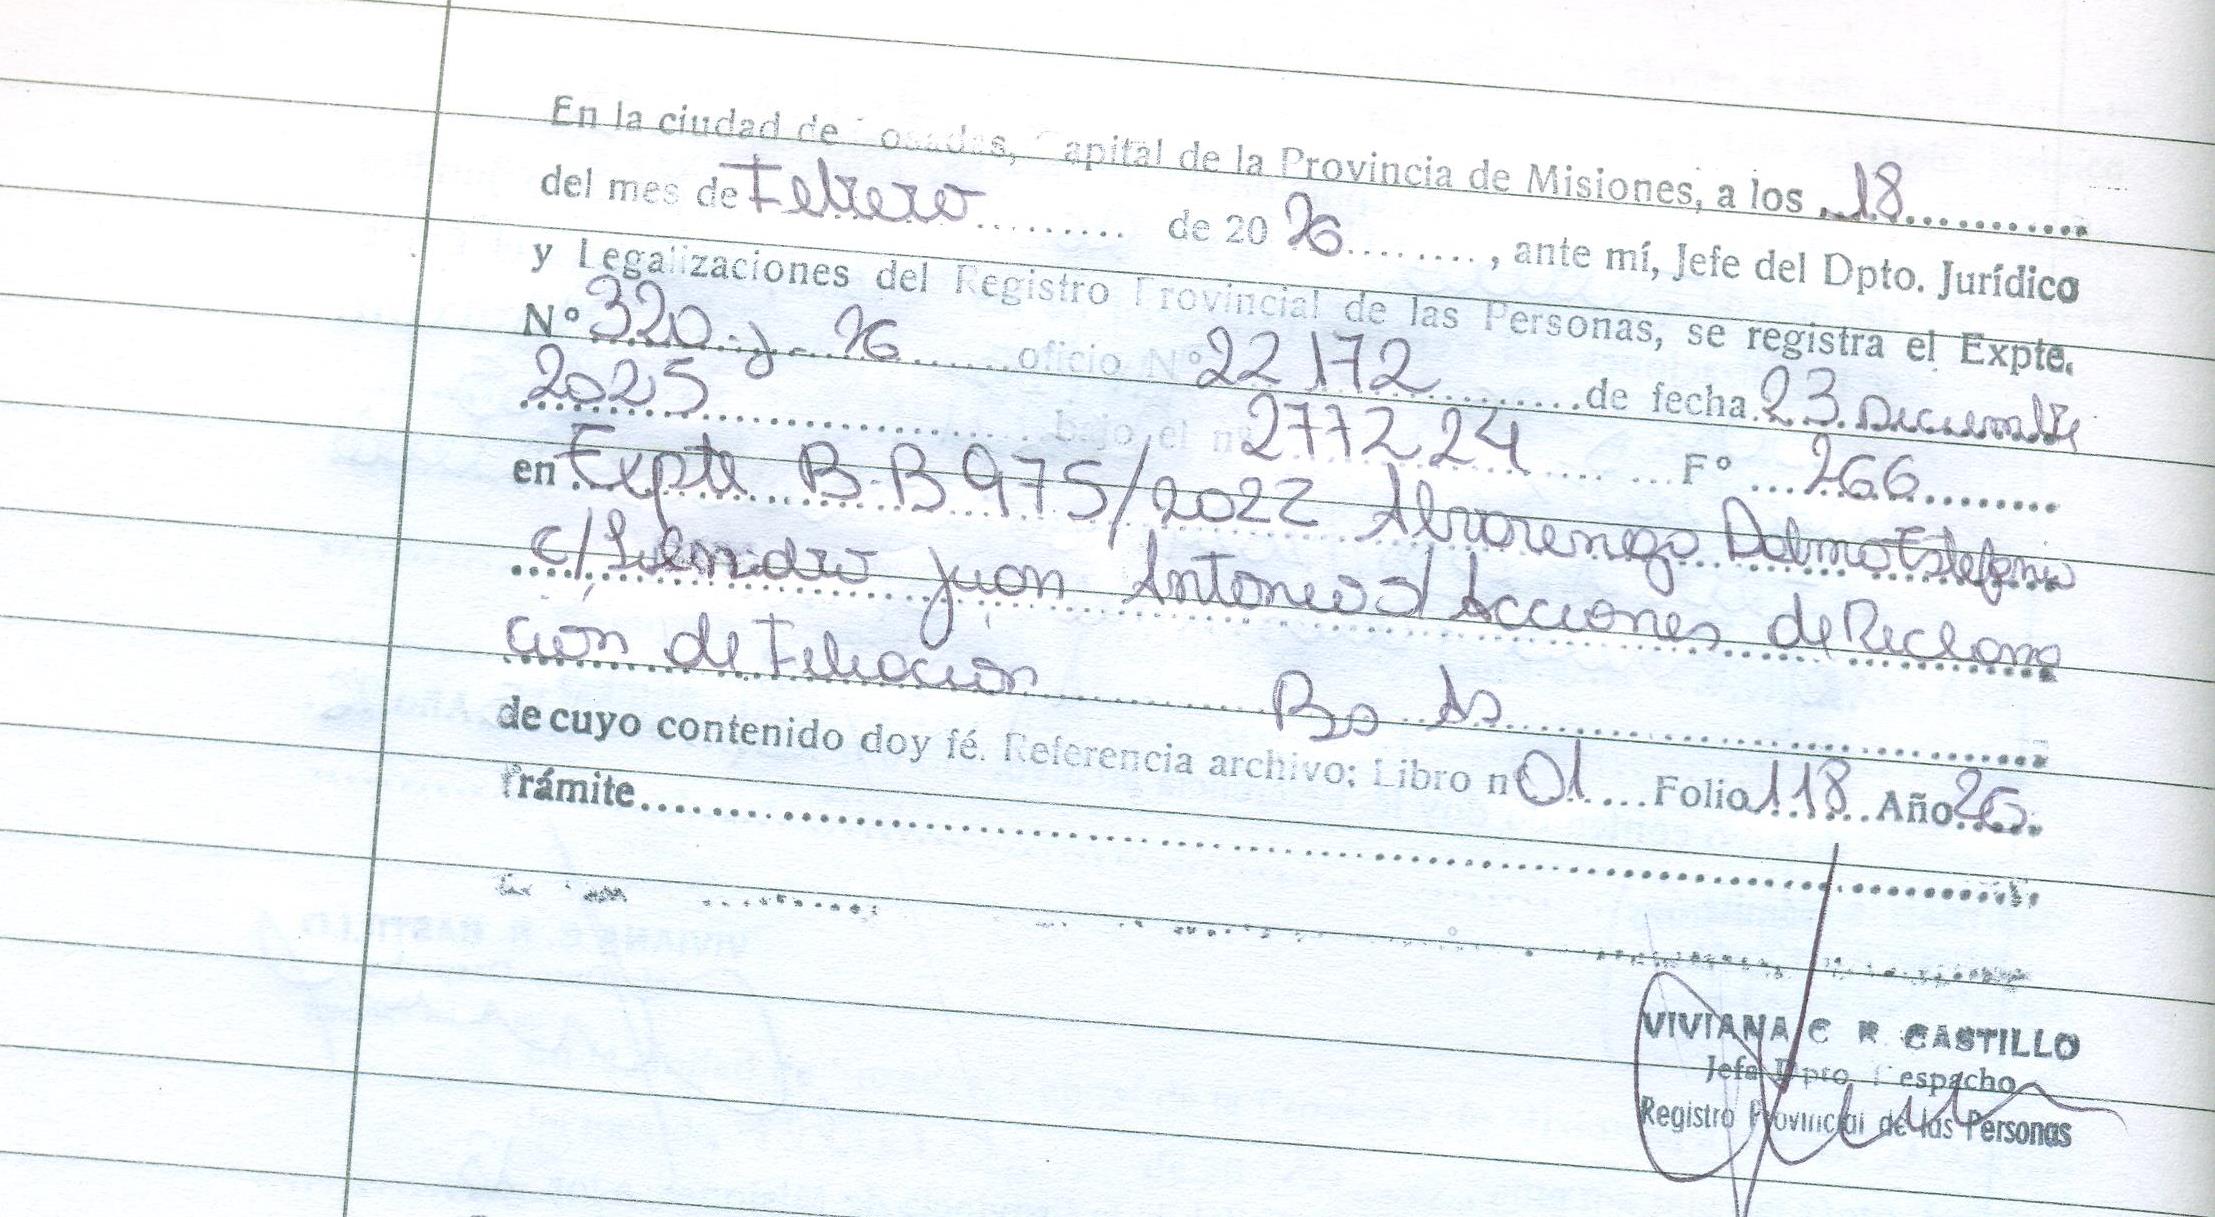 En la ciudad de Posadas, Capital de la Provincia de Misiones, a los 18
del mes de Febrero de 20 26, ante mí, Jefe del Dpto. Jurídico
y Legalizaciones del Registro Provincial de las Personas, se registra el Expte.
N° 320-J-26 oficio N° 22172 de fecha 23 Diciembre
2025 bajo el n° 277224 F° 266
en Expte B-B 975/2022 Alvarenga Dalma Estefania
c/ Juan Antonio s/ Acciones de Reclama
ción de Filiación Bs As
de cuyo contenido doy fé. Referencia archivo: Libro n 01 Folio 118 Año 26
Trámite
VIVIANA C R CASTILLO
Jefa Dpto Despacho
Registro Provincial de las Personas